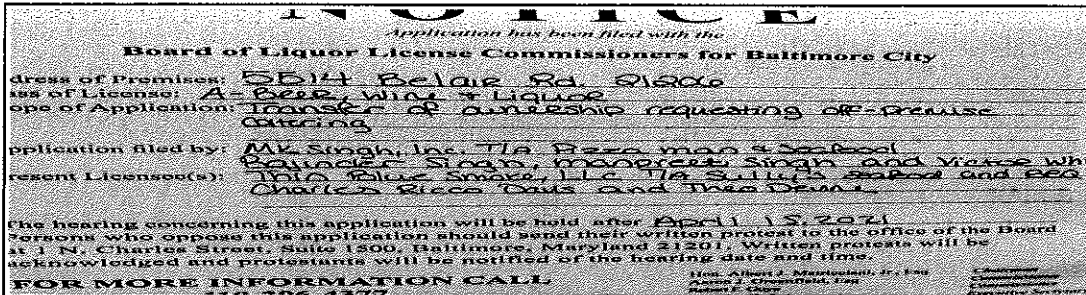 NOTICE
Application has been filed with the
Board of Liquor License Commissioners for Baltimore City
dress of Premises: 5514 Belair Rd. 21206
ss of License: A-Beer, Wine + Liquor
ope of Application: Transfer of ownership requesting off-premise
Catering
pplication filed by: MK Singh, Inc. T/A Pizza man & Seafood
Balinder Singh, Manpreet Singh and Victor Wh
resent Licensee(s): Thin Blue Smoke, LLC T/A Sully's Seafood and BBQ
Charles Ricco Davis and Theo
The hearing concerning this application will be held after April 15, 2021
Persons who oppose this application should send their written protest to the office of the Board
at 1 N. Charles Street, Suite 1500, Baltimore, Maryland 21201. Written protests will be
acknowledged and protestants will be notified of the hearing date and time.
FOR MORE INFORMATION CALL
Hon. Albert J. Matricciani, Jr., Esq
Aaron J. Greenfield, Esq
410-396-4377